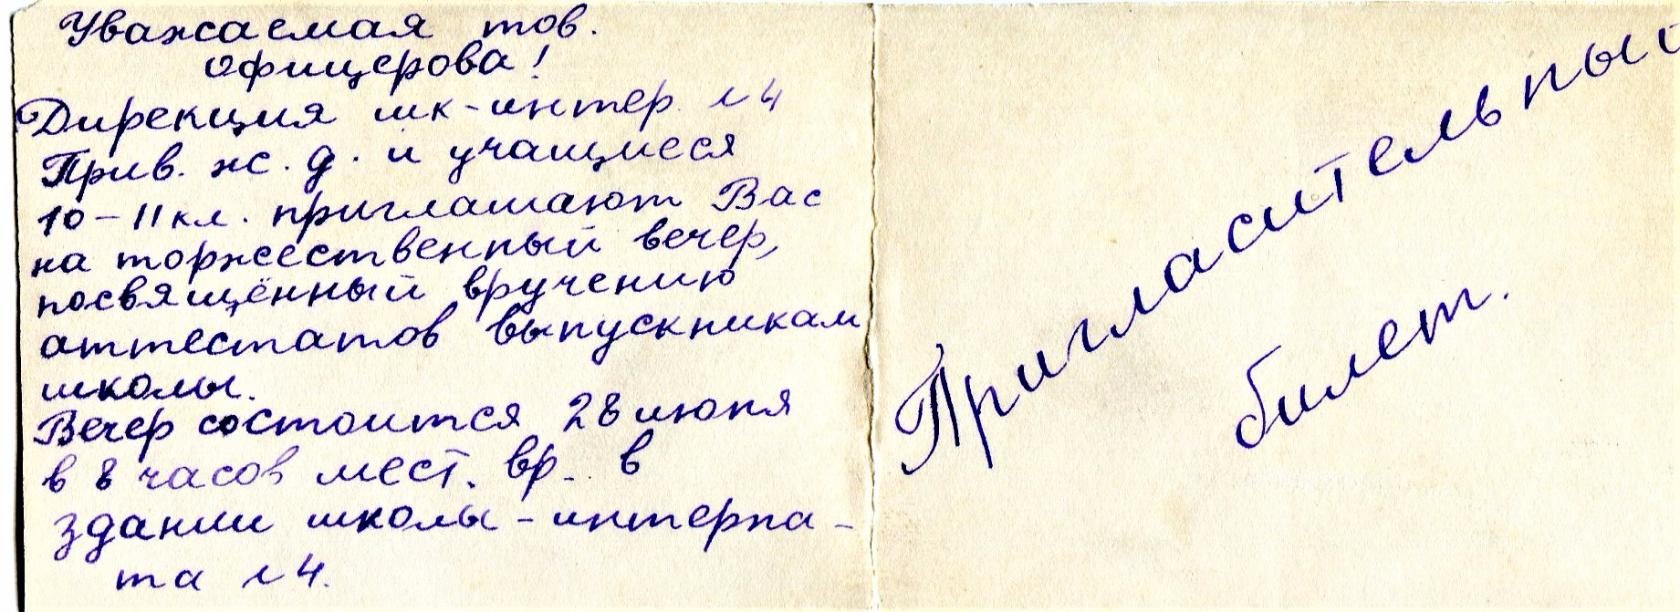 Уважаемая тов.
Офицерова!
Дирекция шк-интер. № 4
Прив. ж. д. и учащиеся
10-11 кл. приглашают Вас
на торжественный вечер,
посвящённый вручению
аттестатов выпускникам
школы.
Вечер состоится 28 июня
в 8 часов мест. вр. в
здании школы-интерна-
та № 4.
Пригласительный
билет.